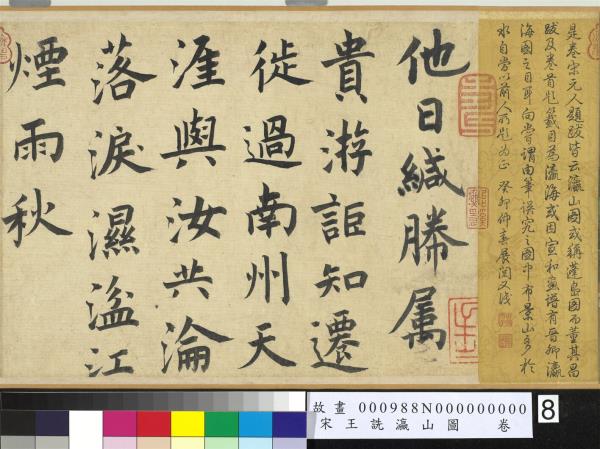 是卷宋元人題跋皆云瀛山圖或稱蓬島圖而董其昌
跋及卷首題籤目為瀛海或因宣和畫譜有晉卿瀛
海圖之目耶向嘗謂由筆誤究之圖中布景山多於
水自當以前人所題為正 癸卯仲春展閱又識
他日緘縢属
貴游詎知遷
徙過南州天
涯與汝共淪
落淚濕湓江
煙雨秋
故畫 000988N000000000
宋王詵瀛山圖 卷
8